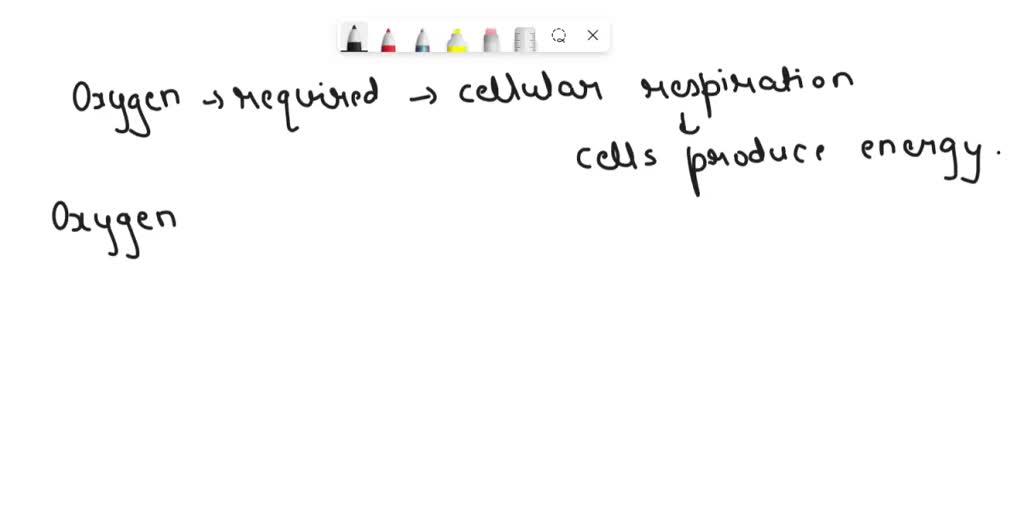 Oxygen → required → cellular respiration
↓
cells produce energy.
Oxygen